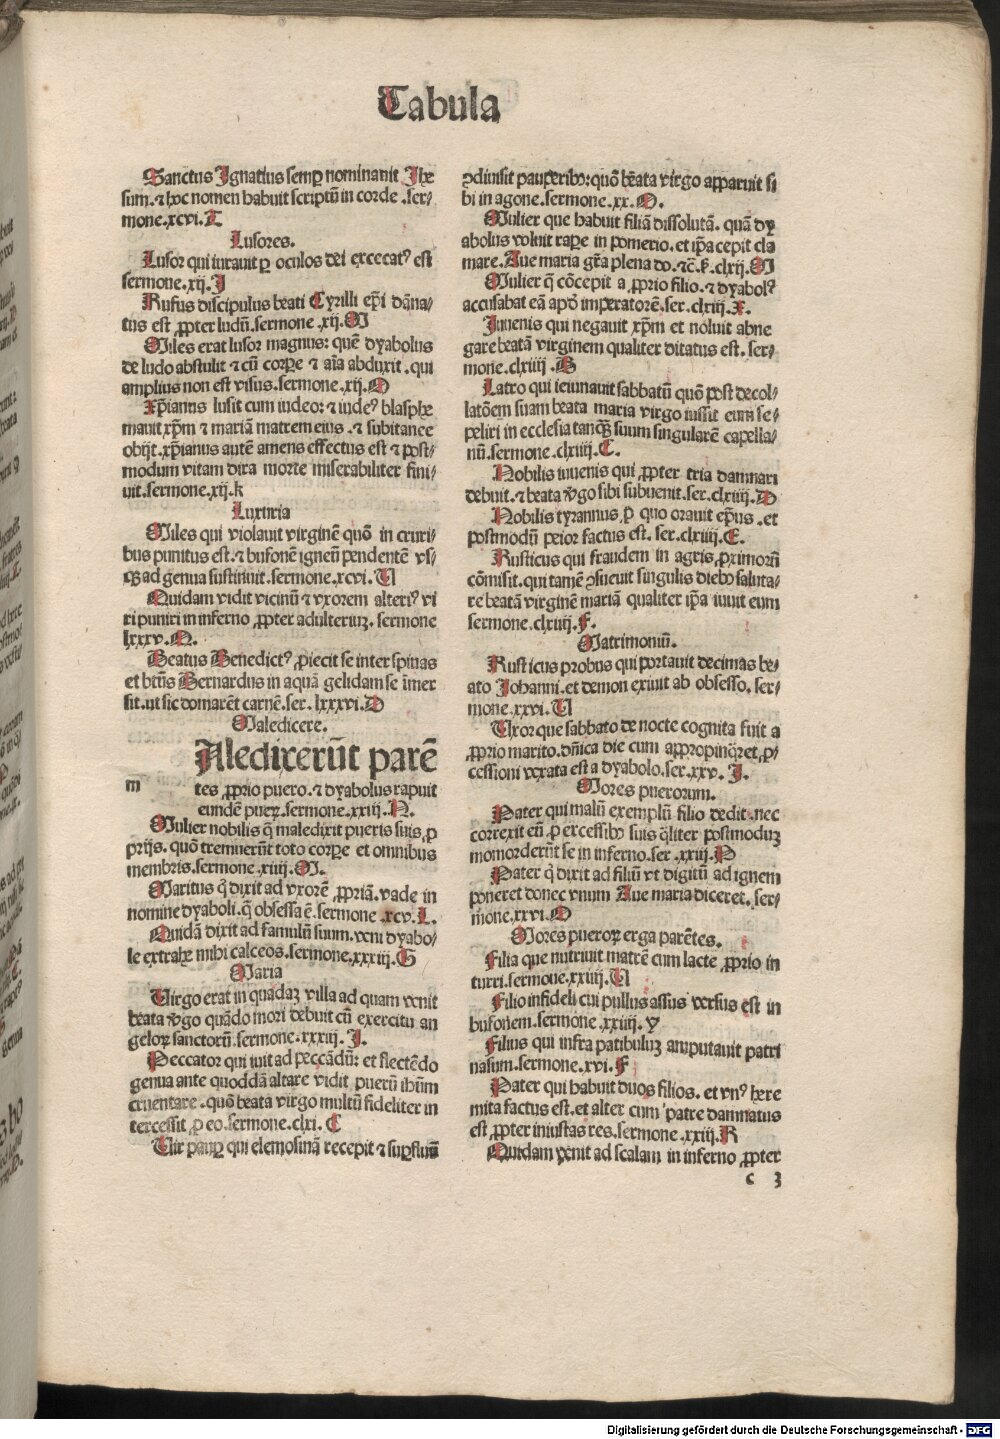 Tabula
Sanctus Ignatius semꝑ nominauit Ihe
sum.⁊ hoc nomen habuit scriptũ in corde .ser⸗
mone.xcvi.T
Lusores.
Lusor qui iurauit ꝑ oculos dei excecatꝰ est
sermone.xij.I
Rufus discipulus beati Cyrilli ep̃i dãna⸗
tus est ꝓpter ludũ.sermone .xij.M
Miles erat lusor magnus: quẽ dyabolus
de ludo abstulit ⁊ cũ corpe ⁊ aĩa abduxit .qui
amplius non est visus.sermone.xij.O
Xp̃ianus lusit cum iudeo: ⁊ iudeꝰ blasphe
mauit xp̃m ⁊ mariã matrem eius .⁊ subitance
obijt.xp̃ianus autẽ amens effectus est ⁊ post⸗
modum vitam dira morte miserabiliter fini⸗
uit.sermone.xij.k
Luxuria
Miles qui violauit virginẽ quõ in cruri⸗
bus punitus est.⁊ bufonẽ ignẽũ pendentẽ vs⸗
qꝫ ad genua sustinuit.sermone.xcvi.U
Quidam vidit vicinũ ⁊ vxorem alteriꝰ vi
ri puniri in inferno ꝓpter adulteriuꝫ. sermone
lxxxv.N.
Beatus Benedictꝰ ꝓiecit se inter spinas
et btũs Bernardus in aquã gelidam se ĩmer
sit.ut sic domarẽt carnẽ.ser.lxxxvi.D
Maledicere.
m
Aledixerũt parẽ
tes ꝓprio puero.⁊ dyabolus rapuit
eundẽ pueꝝ.sermone.xxiij.N.
Mulier nobilis q̃ maledixit pueris suis ꝓ
prijs. quõ tremuerũt toto corpe et omnibus
membris.sermone.xiiij.M.
Maritus q̃ dixit ad vxorẽ ꝓpriã.vade in
nomine dyaboli.q̃ obsessa ẽ.sermone.xcv.L.
Quidã dixit ad famulũ suum.veni dyabo⸗
le extrahe mihi calceos.sermone.xxxiij.G
Maria
Virgo erat in quadaꝫ villa ad quam venit
beata v̂go quãdo mori debuit cũ exercitu an
geloꝝ sanctorũ.sermone.xxxiij.I.
Peccator qui iuit ad peccãdũ: et flectẽdo
genua ante quoddã altare vidit puerũ ihũm
cruentare.quõ beata virgo multũ fideliter in
tercessit ꝓ eo.sermone.clxi.C
Vir paup qui elemosinã recepit ⁊ supfluũ
ꝯdiuisit pauperibꝰ:quõ bẽata virgo apparuit si
bi in agone.sermone.xx.O.
Mulier que habuit filiã dissolutã. quã dy
abolus voluit rape in pomerio.et ip̃a cepit cla
mare.Aue maria grã plena dõ.⁊cẽ.ẜ.clxij.M
Mulier q̃ cõcepit a ꝓprio filio.⁊ dyabolꝰ
accusabat eã apd̃ imperatorẽ.ser.clxiij.X.
Iuuenis qui negauit xp̃m et noluit abne
gare beatã virginem qualiter ditatus est. ser⸗
mone.clxiiij.B
Latro qui ieiunauit sabbatũ quõ post decol⸗
latõem suam beata maria virgo iussit eum se⸗
peliri in ecclesia tanqꝫ suum singularẽ capella⸗
nũ.sermone.clxiiij.C.
Nobilis iuuenis qui ꝓpter tria damnari
debuit.⁊ beata v̂go sibi subuenit.ser.clxiiij.D
Nobilis tyrannus ꝓ quo orauit ep̃us .et
postmodũ peior factus est. ser.clxiiij.E.
Rusticus qui fraudem in agris ꝓximorũ
cõmisit.qui tamẽ ꝯsueuit singulis diebꝰ saluta⸗
re beatã virginẽ mariã qualiter ip̃a iuuit eum
sermone.clxiiij.F.
Matrimoniũ.
Rusticus probus qui portauit decimas be⸗
ato Iohanni.et demon exiuit ab obsesso. ser⸗
mone.xxvi.U
Uxor que sabbato de nocte cognita fuit a
ꝓprio marito.dñica die cum appropinq̃ret ꝓ⸗
cessioni vexata est a dyabolo.ser.xxv. I.
Mores puerorum.
Pater qui malũ exemplũ filio dedit.nec
correxit eũ ꝓ excessibꝰ suis q̃liter postmoduꝫ
momorderũt se in inferno.ser.xxiij.P
Pater q̃ dixit ad filiũ vt digitũ ad ignem
poneret donec vnum Aue maria diceret. ser⸗
mone.xxvi.O
Mores pueroꝝ erga parẽtes.
Filia que nutriuit matrẽ cum lacte ꝓprio in
turri.sermone.xxiiij.U
Filio infideli cui pullus assus versus est in
bufonem.sermone.xxiiij.y
Filius qui infra patibuluꝫ amputauit patri
nasum.sermone.xvi.F
Pater qui habuit duos filios. et vnꝰ here
mita factus est.et alter cum patre damnatus
est ꝓpter iniustas res.sermone.xxiij.R
Quidam venit ad scalam in inferno ꝓpter
c 3
Digitalisierung gefördert durch die Deutsche Forschungsgemeinschaft - DFG